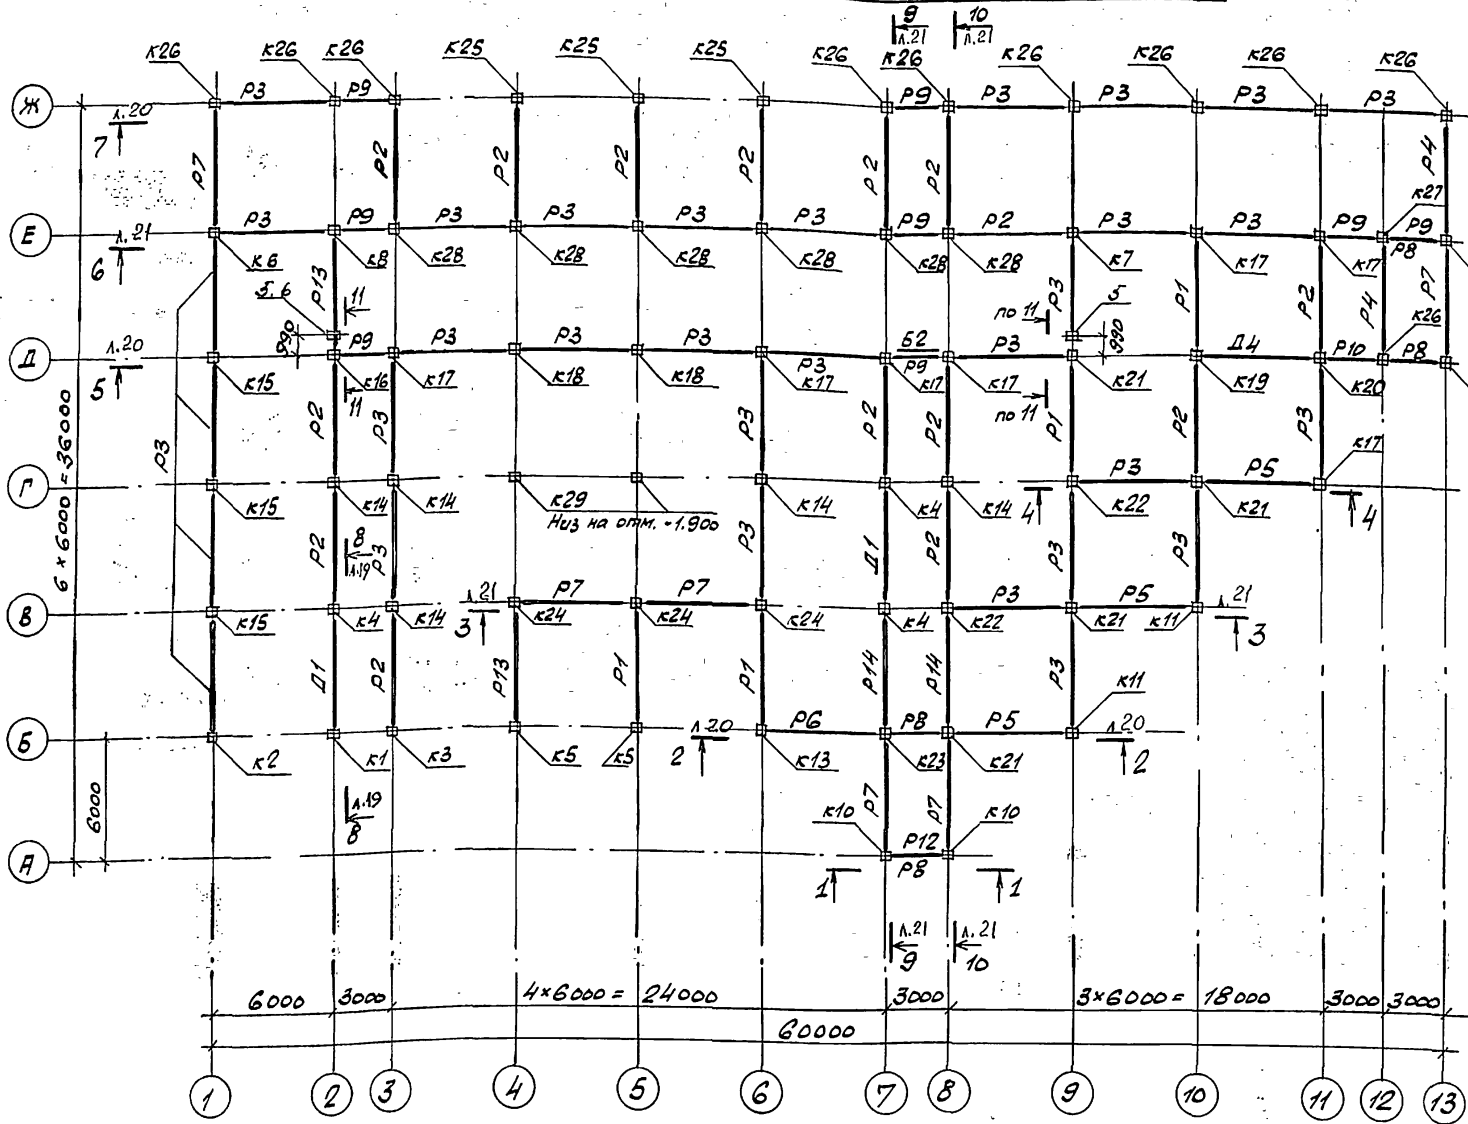 9 10
л.21 л.21
к26 к26 к26 к25 к25 к25 к26 к26 к26 к26 к26 к26
Ж Р3 Р9 Р9 Р3 Р3 Р3 Р3
л.20
7
Р7 Р2 Р2 Р2 Р2 Р2 Р2 Р4
к27
Е Р3 Р9 Р3 Р3 Р3 Р3 Р9 Р2 Р3 Р3 Р9 Р9
Р8
л.21
6
к6 к8 к28 к28 к28 к28 к28 к28 к7 к17 к17
5.6 Р13 11 по 11 Р3 5 Р1 Р2 Р4 Р7
990 990 к26
л.20
5
Д Р9 Р3 Р3 Р3 Р3 Б2 Р9 Р3 Д4 Р10 Р8
к15 к16 к17 к18 к18 к17 к17 к17 к21 к19 к20
11 по 11
Р3 Р2 Р3 Р3 Р2 Р2 Р1 Р2 Р3
к17
Г Р3 Р5
к15 к14 к14 к29 к14 к4 к14 4 к22 к21 4
Низ на отм. -1.900
6×6000=36000
8
л.19
Р2 Р3 Р3 Д1 Р2 Р3 Р3
В л.21 Р7 Р7 Р3 Р5 л.21
3 3
к15 к4 к14 к24 к24 к24 к4 к22 к21 к11
Д1 Р2 Р13 Р1 Р1 Р14 Р14 Р3 к11
Б л.20 Р6 Р8 Р5 л.20
2 2
к2 к1 к3 к5 к5 к13 к23 к21
6000
л.19
8
Р7 Р7
к10 к10
А Р12
Р8
1 1
л.21 л.21
9 10
6000 3000 4×6000= 24000 3000 3×6000= 18000 3000 3000
60000
1 2 3 4 5 6 7 8 9 10 11 12 13